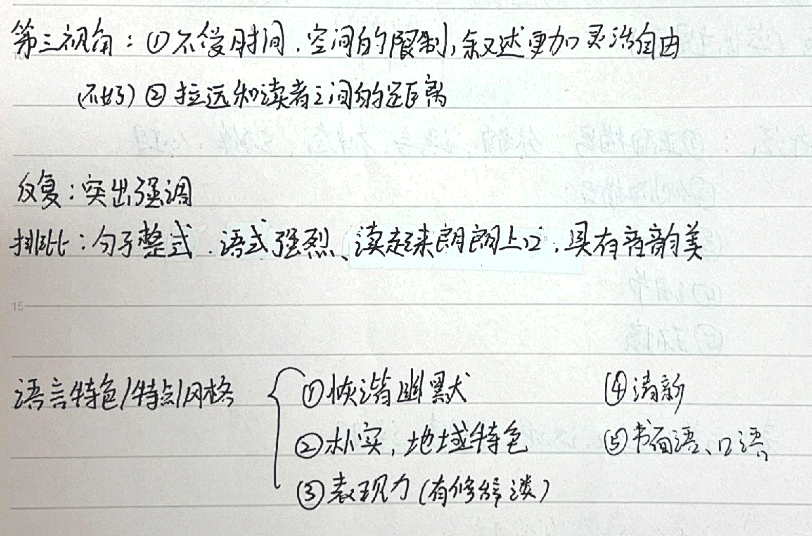 第三视角：①不受时间、空间的限制，叙述更加灵活自由
(不好) ② 拉远和读者之间的距离
反复：突出强调
排比：句子整式、语式强烈、读起来朗朗上口、具有音韵美
15
语言特色/特点/风格 ①恢谐幽默 ④清新
②朴实，地域特色 ⑤书面语、口语
③表现力(有修辞